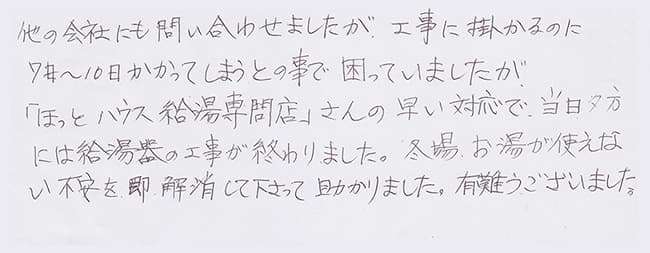 他の会社にも問い合わせましたが、工事に掛かるのに
7日〜10日かかってしまうとの事で困っていましたが
「ほっとハウス給湯専問店」さんの早い対応で、当日夕方
には給湯器の工事が終わりました。冬場、お湯が使えな
い不安を即解消して下さって助かりました。有難うございました。